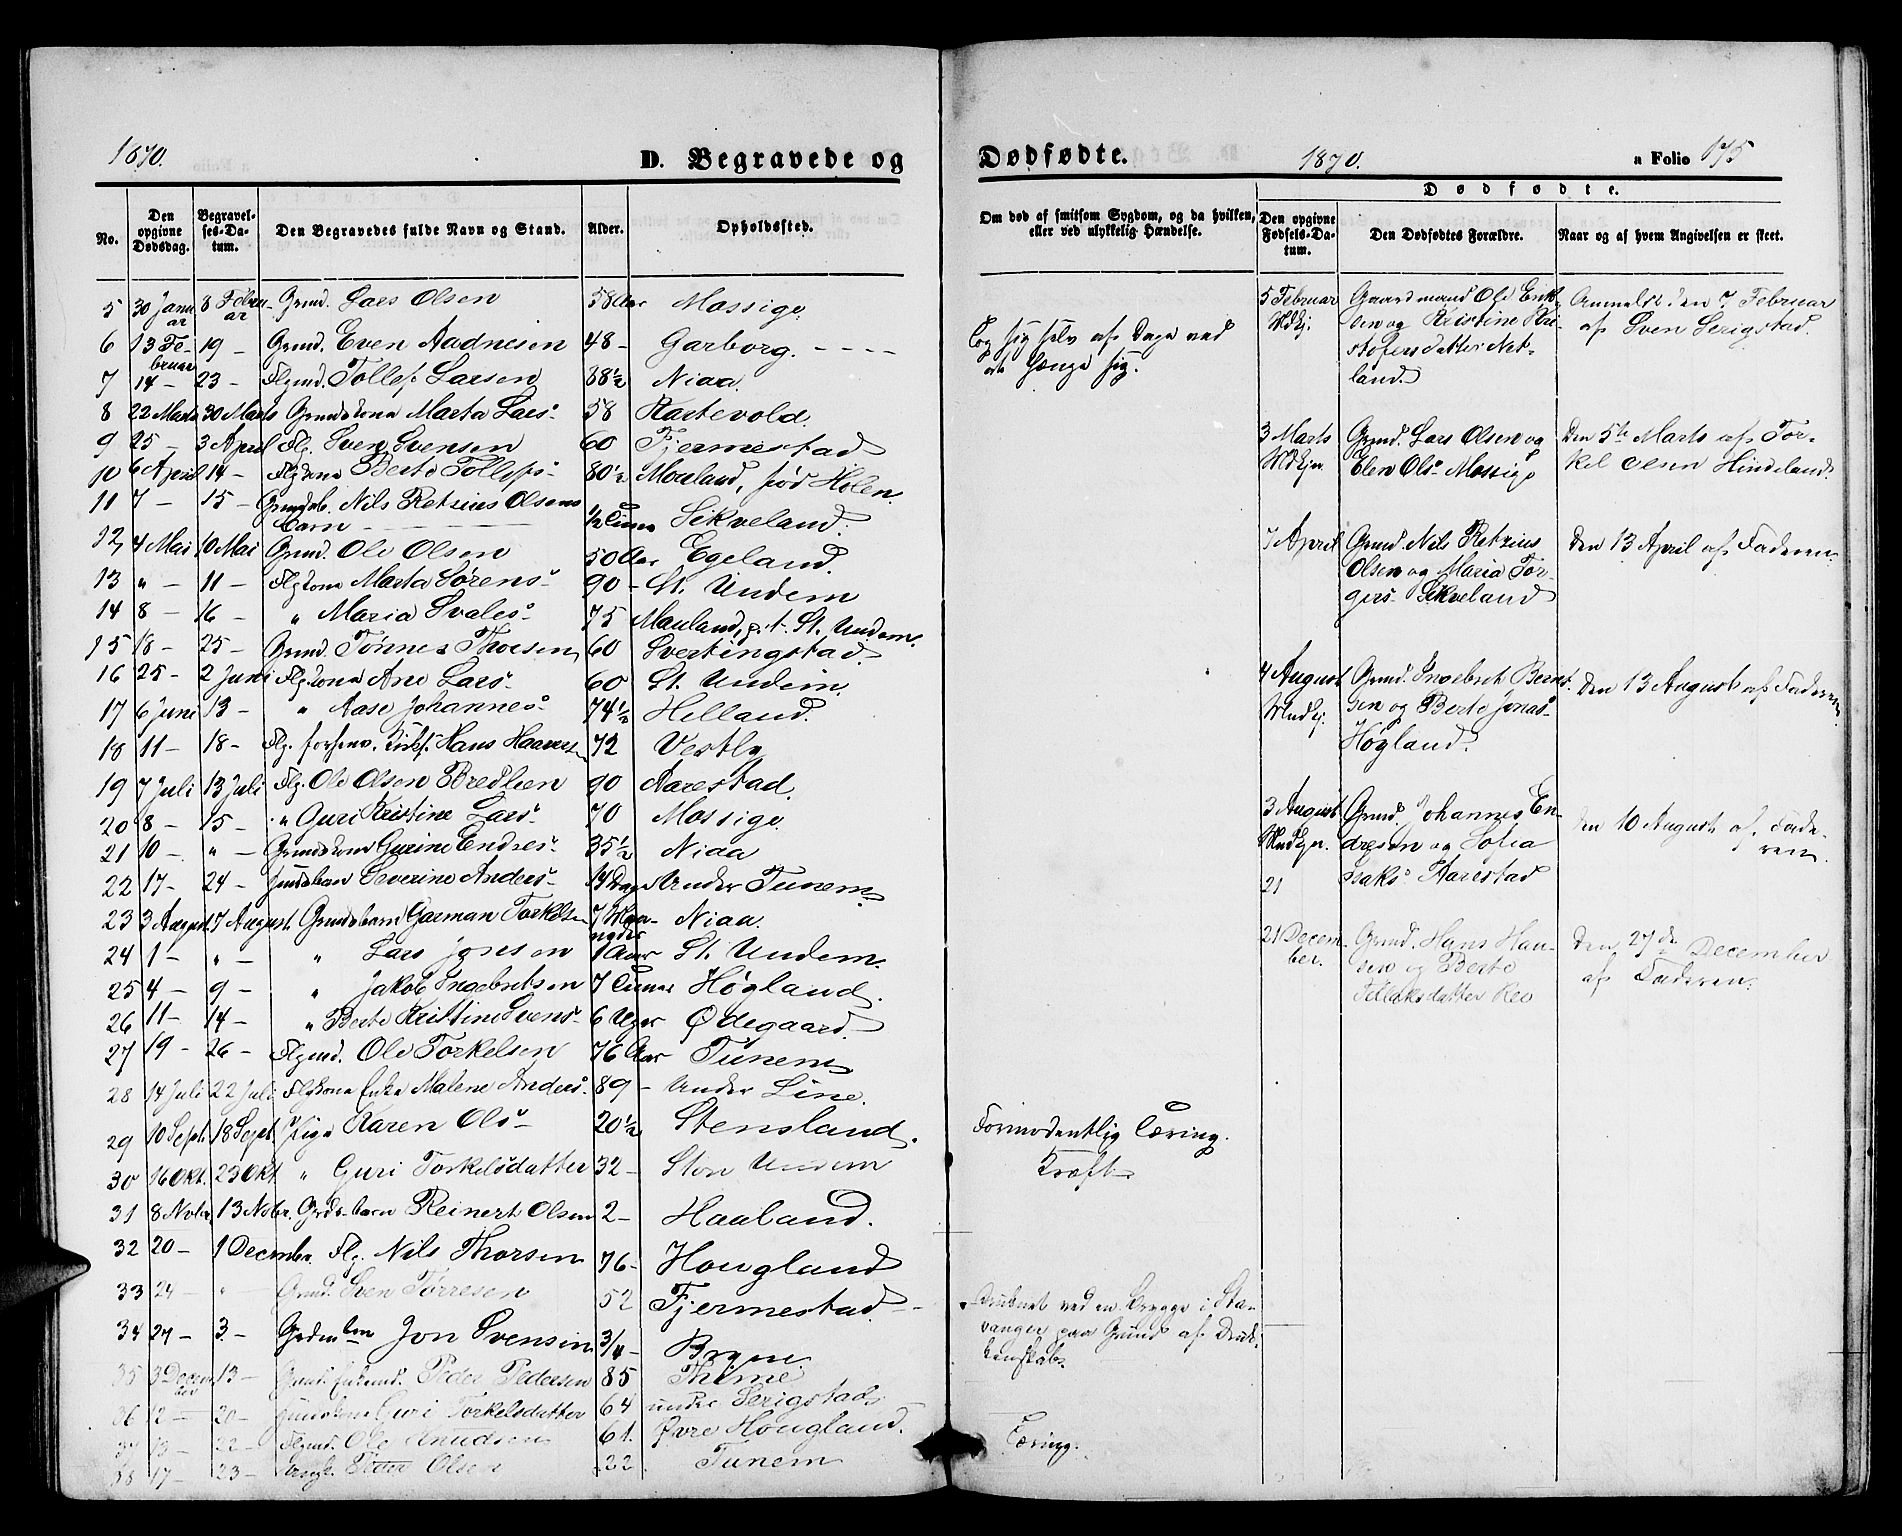 1870.
D. Begravede og
No.
Den opgivne Dødsdag.
Begravelses-Datum.
Den Begravedes fulde Navn og Stand.
Alder.
Opholdssted.
5 30 Januar 8 Februar Grmd. Lars Olsen 58 Aar Mossige
6 13 Februar 19 - Grmd. Even Aadnesen 48 - Garborg.
7 14 - 23 - Flgmd. Tollef Larsen 88½ Niaa.
8 22 Marts 30 Marts Grmdskona Marta Lars- 58 Kartevold.
9 25 - 3 April Flg. Sven Svensen 60 Fjermestad
10 6 April 14 - Flgkona Berte Tollefs- 80½ Moaland, fød Holen.
11 7 - 15 - Grmdsb. Nils Retzius Olsens
Barn - ½ Time Sikveland.
12, 4 Mai 10 Mai Grmd. Ole Olsen 50 Aar Egeland.
13 " - 11 - Flgkona Marta Sørens- 90 - St. Undem
14 8 - 16 - " Maria Svales- 75 Mauland, p. t. St. Undem.
15 18 - 25 - Grmd. Tønnes Thorsen 60 Svertingstad.
16 25 - 2 Juni Flgkona Ane Lars- 60 St. Undem.
17 6 June 13 - " Aase Johannes- 74½ Helland.
18 11 - 18 - Flg. forhenv. Hans Haaversen 72 Vestly
19 7 Juli 13 Juli Flg. Ole Olsen Bredlien 90 Aarestad.
20 8 - 15 - " Guri Kristine Lars- 70 Mossige
21 10 - " - Grmdskona Gurine Endres- 35½ Niaa
22 17 - 24 - Huusbarn Severine Anders- 14 Dage Under Tunem
23 3 August 7 August. Grmdsbarn Garman Torkelsen 7 Maaneder Niaa.
24 1 - " - " Lars Jonsen 1 Aar St. Undem.
25 4 - 9 - " Jakob Ingebretsen 7 Timer Høgland.
26 11 - 14 - " Berte Kristine Svens- 6 Uger Ødegaard.
27 19 - 26 - Flgmd. Ole Torkelsen 76 Aar Tunem
28 14 Juli 22 Juli Flgkona Enke Malene Anders- 89 - Under Line.
29 10 Sept. 18 Sept. Pige Karen Ols- 20½ Stensland.
30 16 Okt. 23 Okt. " Guri Torkelsdatter 32 - Stor Undem
31 8 Nobr 13 Nobr. Grdsbarn Reinert Olsen 2 - Haaland.
32 20 - 1 December. Flg. Nils Thorsen 76 - Hougland
33 24 - " - Grmd. Sven Tørresen 52 Fjermestad.
34 27 - 3 - Jon Svensen 3/4 - Bryne
35 3 December 13 - Grmd. Enkemd. Peder Pedersen 85 Thime
36 12 - 20 - Guri Torkelsdatter 64 under Serigstad
37 13 - 22 - Flgmd. Ole Knudsen 61. Øvre Hougland.
38 17 - 23 - Peder Olsen 22 Tunem
Dødfødte.
1870.
a Folio 175
Om død af smitsom Sygdom, og da hvilken,
eller ved ulykkelig Hændelse.
Dødfødte.
Den opgivne Fødsels-Datum.
Den Dødfødtes Forældre.
Naar og af hvem Angivelsen er skeet.
Tog sig selv af Dage ved
at hænge sig.
Formodentlig Tæring.
Kræft
Druknet ved en Brygge i Stavanger
paa Grund af Drukkenskab.
Tæring.
5 Februar Gaardmand Ole Erik- Anmeldt den 7 Februar
Mdkj. sen og Kristine Kri- af Sven Serigstad.
stofersdatter Net-
land.
3 Marts Grmd. Lars Olsen og Den 5te Marts af Tor-
Mdkjn. Elen Ols- Mossige kel Hindeland.
7 April Grmd. Nils Retzius Den 13 April af Faderen
Olsen og Maria Tor-
gers- Sikveland
4 August Grmd. Ingebret Bernt- Den 13 August af Faderen
Mndkj. sen og Berte Jonas-
Høgland.
3 August Grmd. Johannes En- Den 10 August af Fade-
Mndkjn. dresen og Sofia ren.
21 Isaks- Aarestad
21 Decem- Grmd. Hans Han- Den 27de December
ber. sen og Berte af Faderen.
Tollaksdatter Re